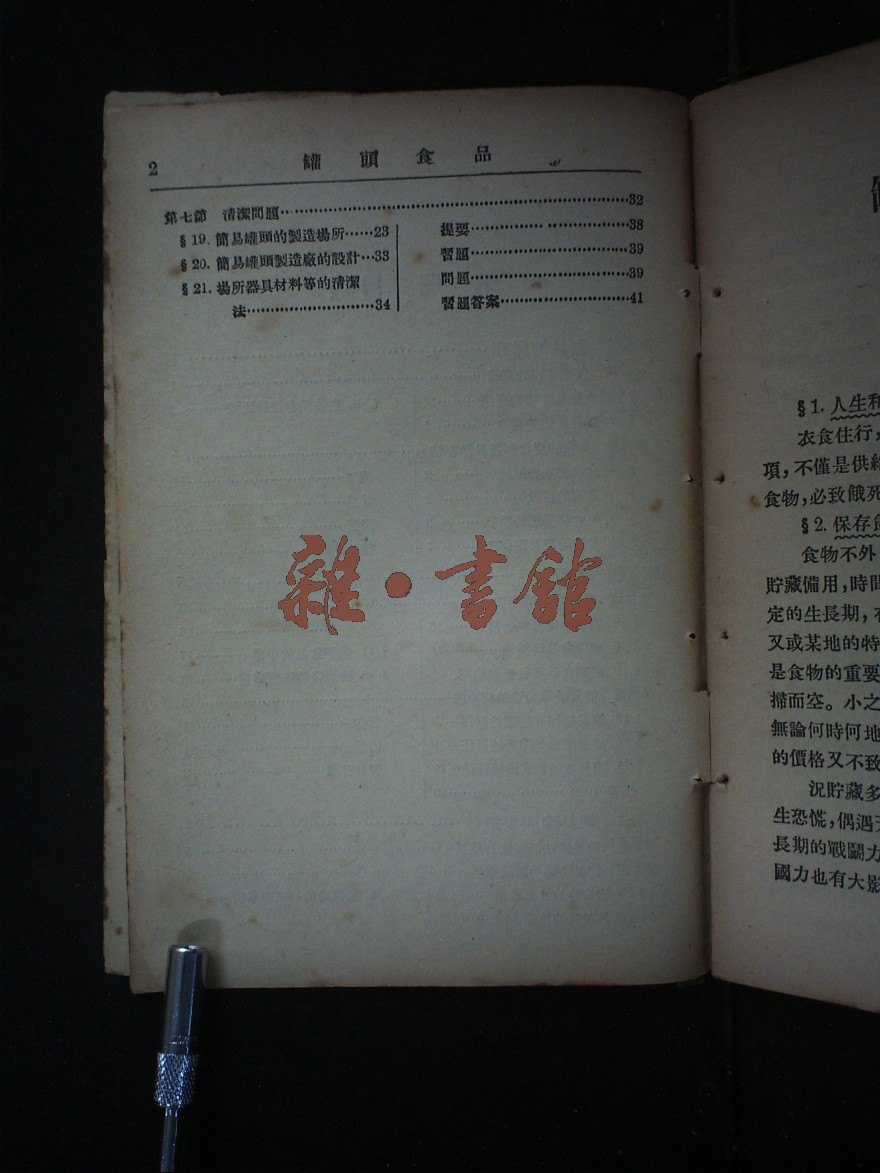 2
罐頭食品
第七節 清潔問題……………………………………32
§19. 簡易罐頭的製造場所……23
§20. 簡易罐頭製造廠的設計…33
§21. 場所器具材料等的清潔
法………………34
提要………………38
習題………………39
問題………………39
習題答案………………41
雜•書館
§1. 人生和
衣食住行,
項,不僅是供給
食物,必致餓死
§2. 保存食
食物不外
貯藏備用,時間
定的生長期,
又或某地的特
是食物的重要
掃而空。小之
無論何時何地
的價格又不致
況貯藏多
生恐慌,偶遇
長期的戰鬭力
國力也有大影